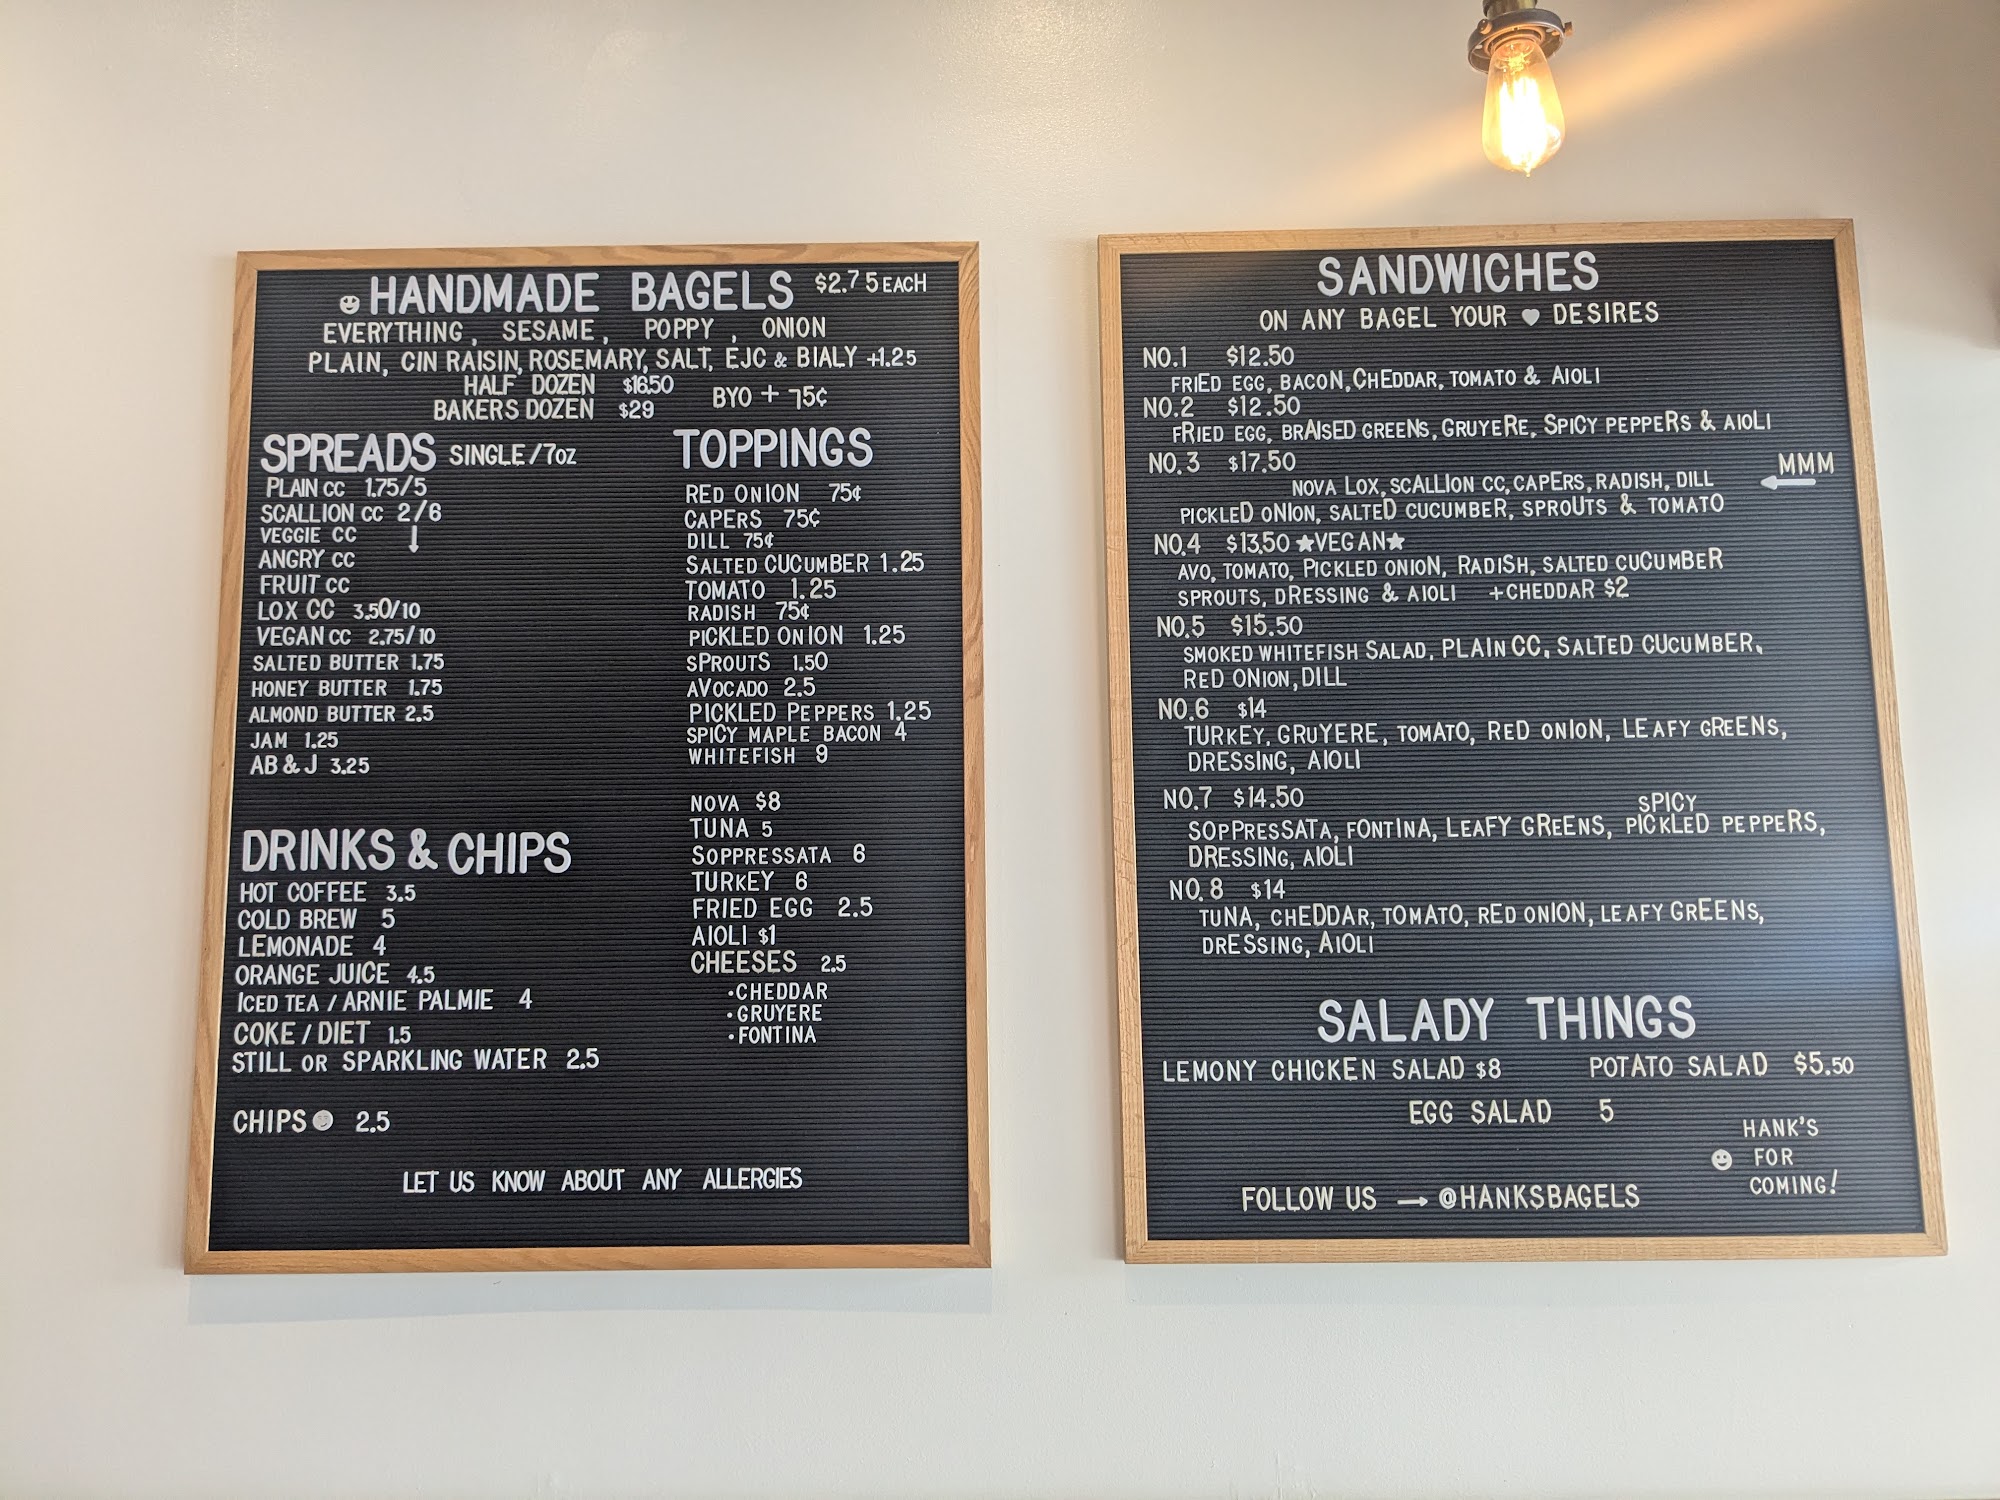 HANDMADE BAGELS $2.75 EACH
EVERYTHING, SESAME, POPPY, ONION
PLAIN, CIN RAISIN, ROSEMARY, SALT, EJC & BIALY +1.25
HALF DOZEN $16.50
BAKERS DOZEN $29
BYO + 75¢
SPREADS SINGLE/7OZ
PLAIN CC 1.75/5
SCALLION CC 2/6
VEGGIE CC
ANGRY CC
FRUIT CC
LOX CC 3.50/10
VEGAN CC 2.75/10
SALTED BUTTER 1.75
HONEY BUTTER 1.75
ALMOND BUTTER 2.5
JAM 1.25
AB & J 3.25
DRINKS & CHIPS
HOT COFFEE 3.5
COLD BREW 5
LEMONADE 4
ORANGE JUICE 4.5
ICED TEA / ARNIE PALMIE 4
COKE / DIET 1.5
STILL OR SPARKLING WATER 2.5
CHIPS 2.5
TOPPINGS
RED ONION 75¢
CAPERS 75¢
DILL 75¢
SALTED CUCUMBER 1.25
TOMATO 1.25
RADISH 75¢
PICKLED ONION 1.25
SPROUTS 1.50
AVOCADO 2.5
PICKLED PEPPERS 1.25
SPICY MAPLE BACON 4
WHITEFISH 9
NOVA $8
TUNA 5
SOPPRESSATA 6
TURKEY 6
FRIED EGG 2.5
AIOLI $1
CHEESES 2.5
•CHEDDAR
•GRUYERE
•FONTINA
LET US KNOW ABOUT ANY ALLERGIES
SANDWICHES
ON ANY BAGEL YOUR ♥ DESIRES
NO.1 $12.50
FRIED EGG, BACON, CHEDDAR, TOMATO & AIOLI
NO.2 $12.50
FRIED EGG, BRAISED GREENS, GRUYERE, SPICY PEPPERS & AIOLI
NO.3 $17.50
MMM
NOVA LOX, SCALLION CC, CAPERS, RADISH, DILL ←
PICKLED ONION, SALTED CUCUMBER, SPROUTS & TOMATO
NO.4 $13.50 ★VEGAN★
AVO, TOMATO, PICKLED ONION, RADISH, SALTED CUCUMBER
SPROUTS, DRESSING & AIOLI +CHEDDAR $2
NO.5 $15.50
SMOKED WHITEFISH SALAD, PLAIN CC, SALTED CUCUMBER,
RED ONION, DILL
NO.6 $14
TURKEY, GRUYERE, TOMATO, RED ONION, LEAFY GREENS,
DRESSING, AIOLI
NO.7 $14.50
SPICY
SOPPRESSATA, FONTINA, LEAFY GREENS, PICKLED PEPPERS,
DRESSING, AIOLI
NO.8 $14
TUNA, CHEDDAR, TOMATO, RED ONION, LEAFY GREENS,
DRESSING, AIOLI
SALADY THINGS
LEMONY CHICKEN SALAD $8 POTATO SALAD $5.50
EGG SALAD 5
HANK'S
FOR
COMING!
FOLLOW US → @HANKSBAGELS